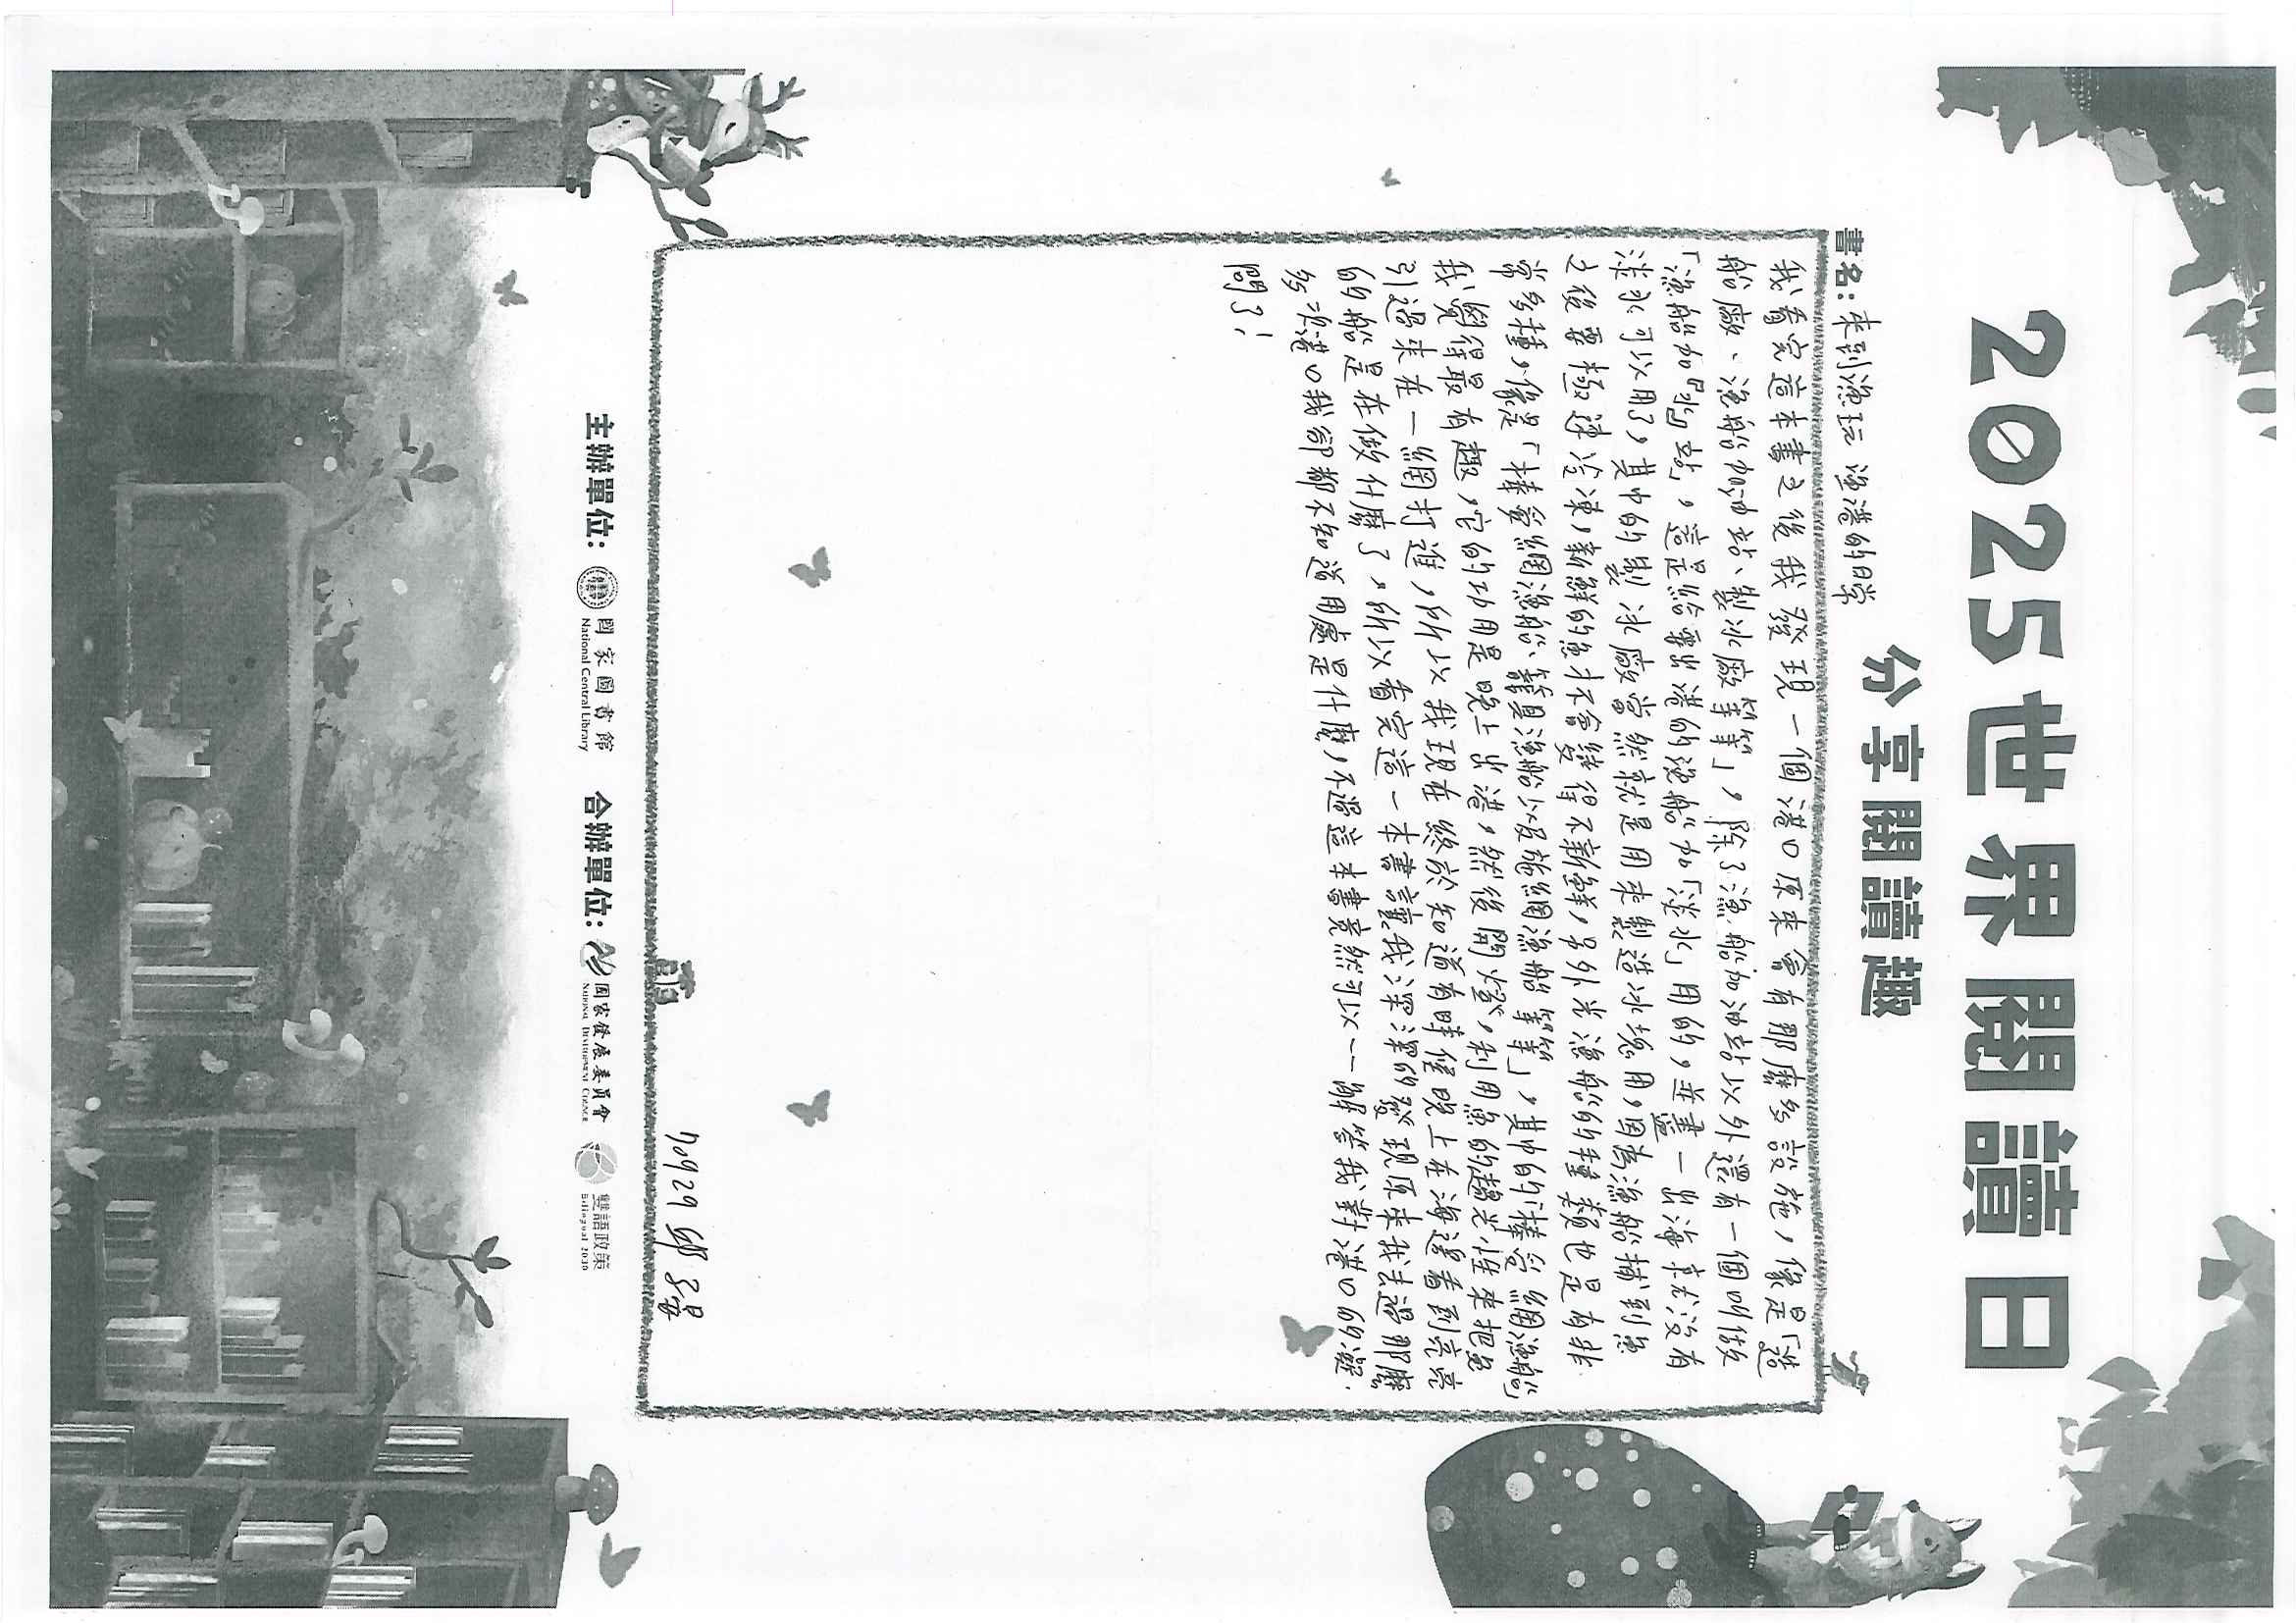 2025世界閱讀日
分享閱讀趣
書名：來到漁玩 漁港的日常
我看完這本書之後我發現一個港口原來會有那麼多設施，像是「造
船廠、漁船加油站、製冰廠等等」，除了漁船加油站以外還有一個叫做
「漁船加『水』站」，這是給要出港的漁船加「淡水」用的，畢竟一出海就沒有
淡水可以用了，其中的製冰廠當然就是用來製造冰塊用，因為漁船捕到魚
之後要極速冷凍，新鮮的魚才不會變得不新鮮，另外光漁船的種類也是有非
常多種，像是「棒受網漁船、籠具漁船以及拖網漁船等等」，其中的「棒受網漁船」
我覺得最有趣，它的功用是晚上出港，然後開燈，利用魚的趨光性來把魚
引過來在一網打進，所以我現在終於知道有時候晚上在海邊看到亮亮
的船是在做什麼了，所以看完這一本書讓我深深的發現原來我去過那麼
多次港口我卻都不知道用處是什麼，不過這本書竟然可以一一解答我對港口的疑
問了！
70929 邱
主辦單位：國家圖書館 National Central Library 合辦單位：國家發展委員會 National Development Council 雙語政策 Bilingual 2030